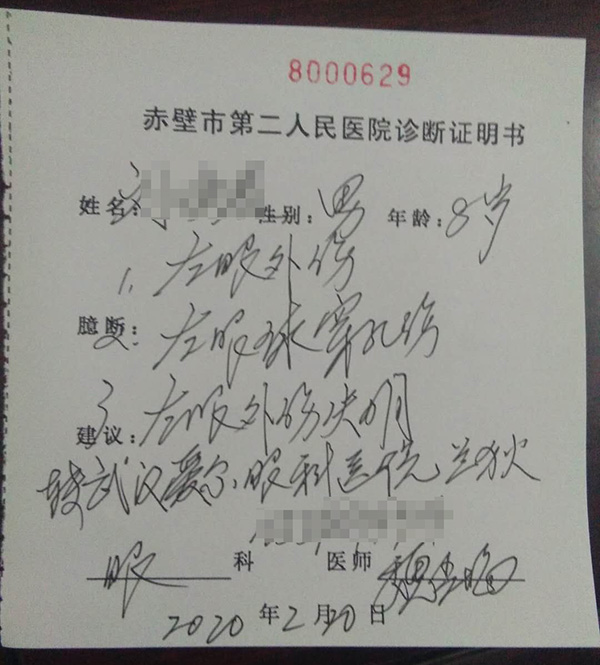 8000629
赤壁市第二人民医院诊断证明书
姓名: 性别: 男 年龄: 8岁
1、左眼外伤
臆断: 2、左眼球穿孔伤
3、左眼外伤失明
建议:
转武汉爱尔眼科医院
眼 科 医师
2020年2月20日